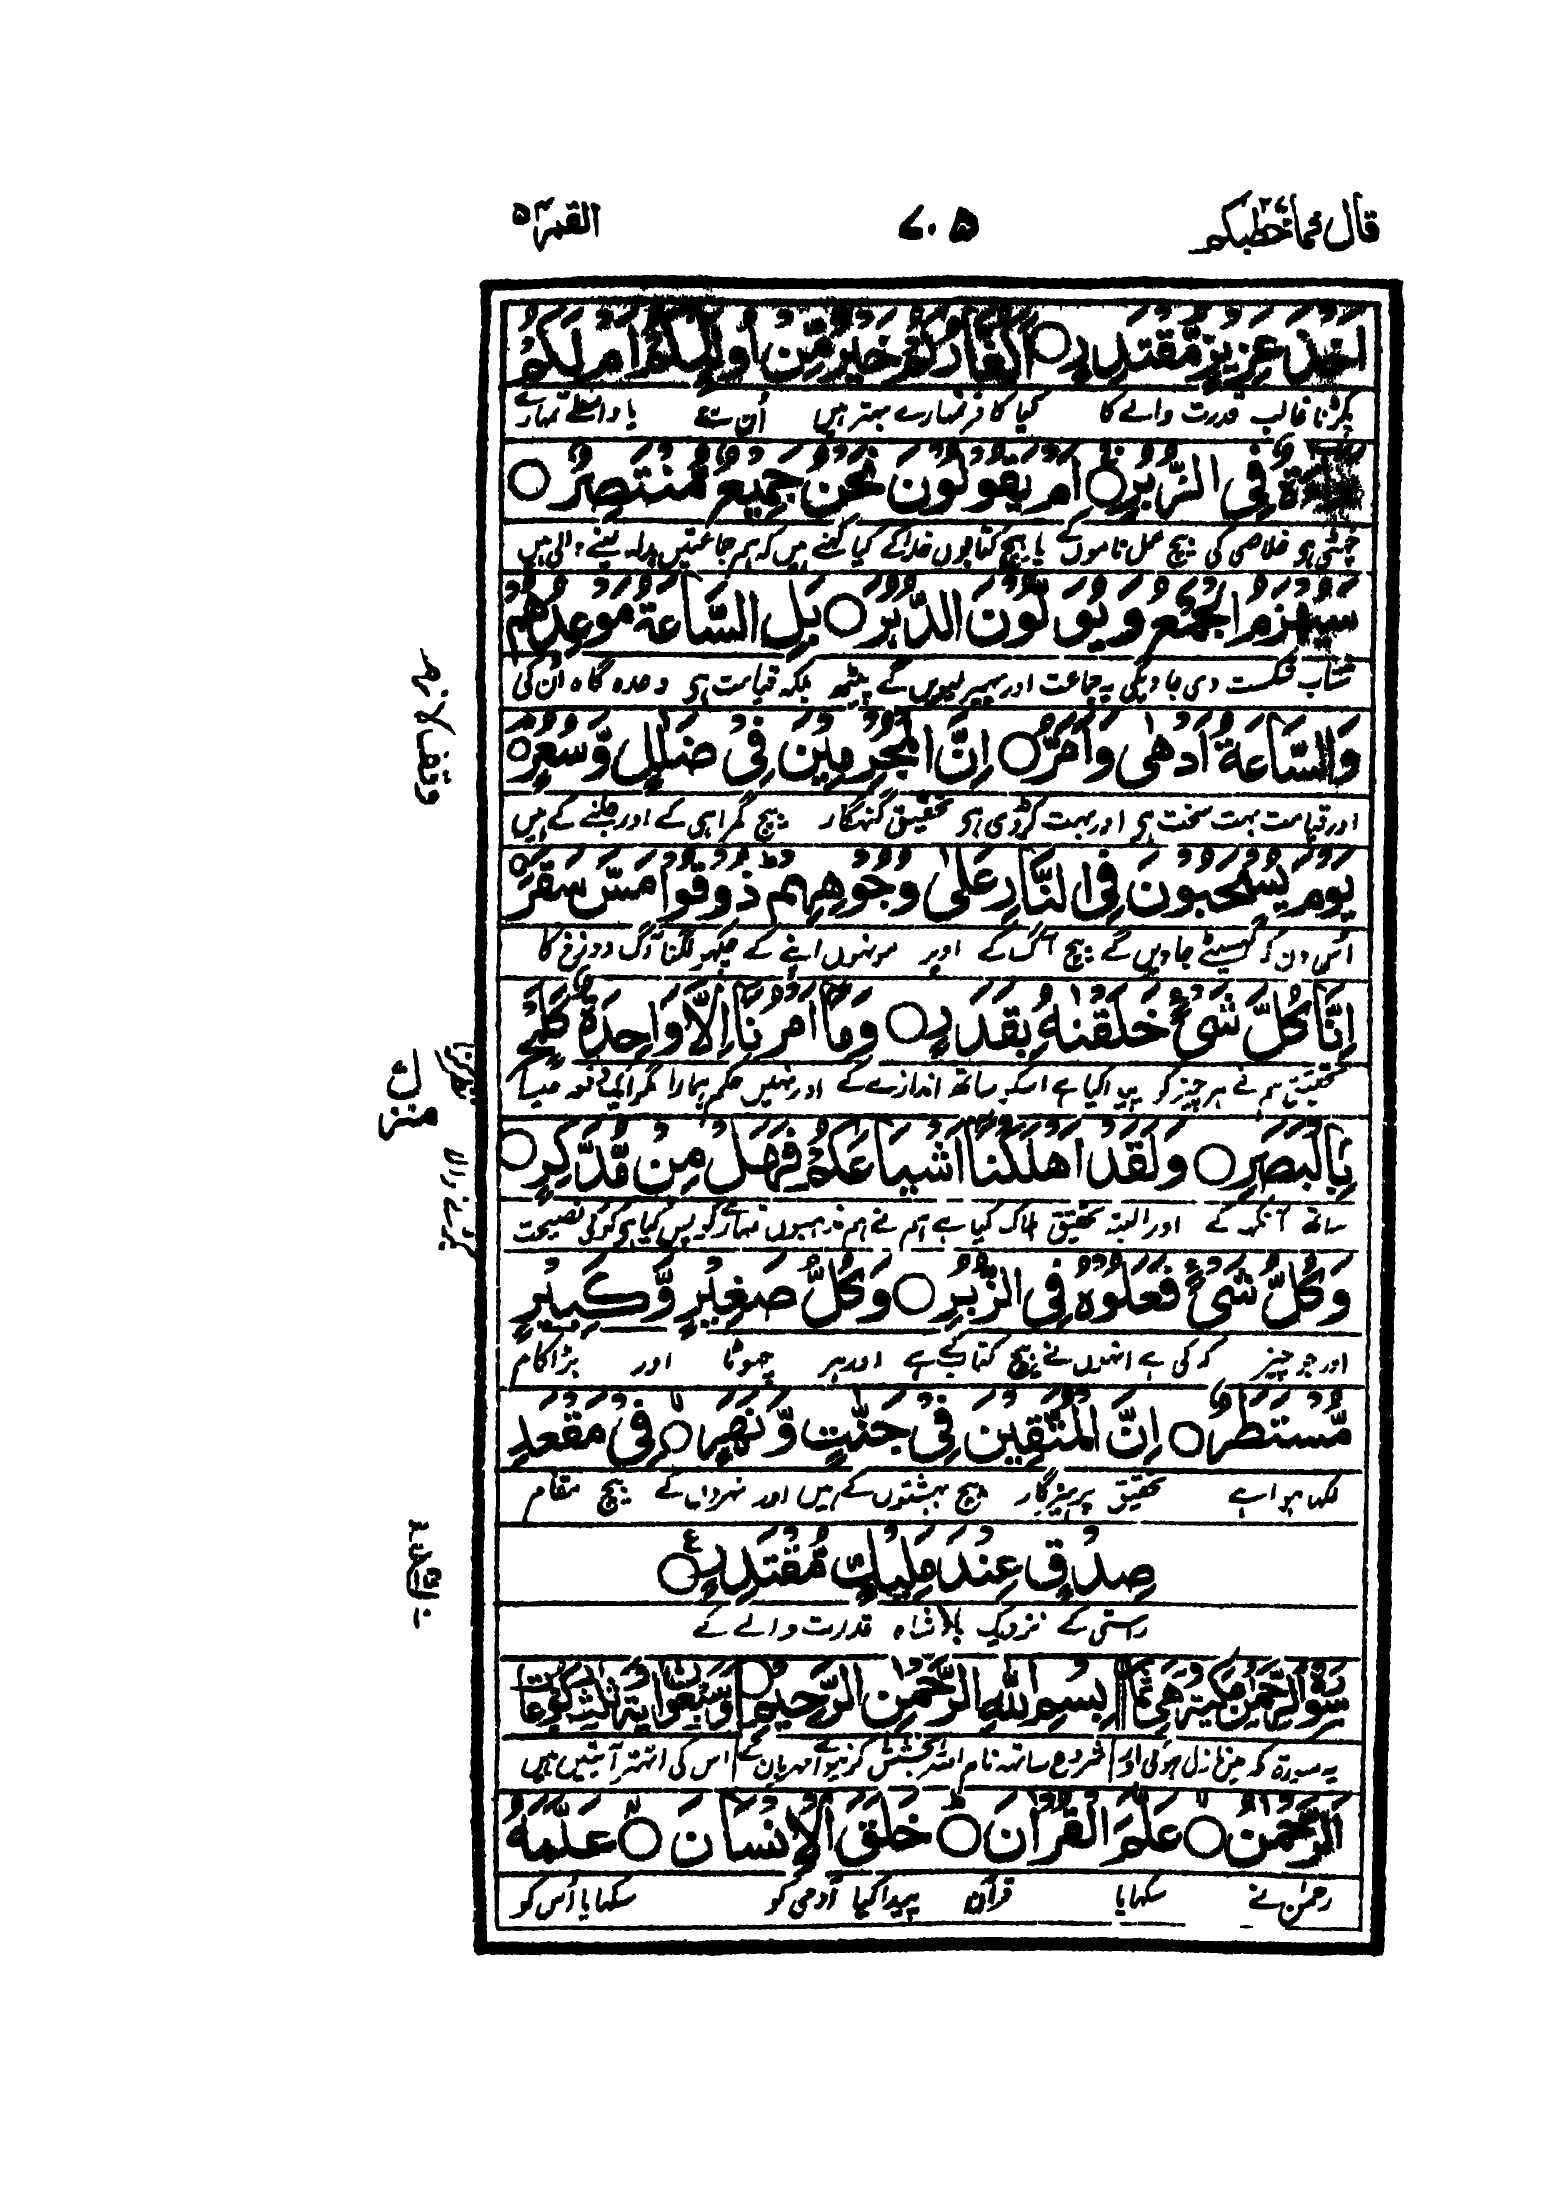 قال فما خطبكم ٢٧
٧٠۵
القمر ۵۴
اَخْذَ عَزِيْزٍ مُّقْتَدِرٍ ○ اَكُفَّارُكُمْ خَيْرٌ مِّنْ اُولٰٓئِكُمْ اَمْ لَكُمْ
پکڑنا غالب قدرت والے کا کیا کافر تمہارے بہتر ہیں اُن سے یا واسطے تمہارے
بَرَآءَةٌ فِى الزُّبُرِ ○ اَمْ يَقُوْلُوْنَ نَحْنُ جَمِيْعٌ مُّنْتَصِرٌ ○
چھٹی ہی خلاصی کی بیچ عمل ناموں کے یا بیچ کتابوں خدا کے کیا کہتے ہیں کہ ہم جماعتیں بدلہ لینے والی ہیں
سَيُهْزَمُ الْجَمْعُ وَيُوَلُّوْنَ الدُّبُرَ ○ بَلِ السَّاعَةُ مَوْعِدُهُمْ
شتاب شکست دی جاویگی یہ جماعت اور پھیر لیویں گے پیٹھ بلکہ قیامت ہی وعدہ گاہ اُن کی
وَالسَّاعَةُ اَدْهٰى وَاَمَرُّ ○ اِنَّ الْمُجْرِمِيْنَ فِىْ ضَلٰلٍ وَّسُعُرٍ ○
اور قیامت بہت سخت ہی اور بہت کڑوی ہی تحقیق گنہگار بیچ گمراہی کے اور جلنے کے ہیں
يَوْمَ يُسْحَبُوْنَ فِى النَّارِ عَلٰى وُجُوْهِهِمْ ذُوْقُوْا مَسَّ سَقَرَ ○
اُس دن کہ گھسیٹے جاویں گے بیچ آگ کے اوپر مونہوں اپنے کے چکھو لگنا آگ دوزخ کا
اِنَّا كُلَّ شَىْءٍ خَلَقْنٰهُ بِقَدَرٍ ○ وَمَآ اَمْرُنَآ اِلَّا وَاحِدَةٌ كَلَمْحٍ
تحقیق ہم نے ہر چیز کو پیدا کیا ہے اسکو ساتھ اندازے کے اور نہیں حکم ہمارا مگر ایک دفعہ جیسا
بِالْبَصَرِ ○ وَلَقَدْ اَهْلَكْنَآ اَشْيَاعَكُمْ فَهَلْ مِنْ مُّدَّكِرٍ ○
ساتھ آنکھ کے اور البتہ تحقیق ہلاک کیا ہے ہم نے ہم مذہبوں تمہارے کو پس کیا ہی کوئی نصیحت
وَكُلُّ شَىْءٍ فَعَلُوْهُ فِى الزُّبُرِ ○ وَكُلُّ صَغِيْرٍ وَّكَبِيْرٍ
اور جو چیز کہ کی ہے انہوں نے بیچ کتاب کے ہے اور ہر چھوٹا اور بڑا کام
مُّسْتَطَرٌ ○ اِنَّ الْمُتَّقِيْنَ فِىْ جَنّٰتٍ وَّنَهَرٍ ○ فِىْ مَقْعَدِ
لکھا ہوا ہے تحقیق پرہیزگار بیچ بہشتوں کے ہیں اور نہروں کے بیچ مقام
صِدْقٍ عِنْدَ مَلِيْكٍ مُّقْتَدِرٍ ○ ع
راستی کے نزدیک بادشاہ قدرت والے کے
سُوْرَةُ الرَّحْمٰنِ مَكِّيَّةٌ هِىَ ثَمَا بِسْمِ اللهِ الرَّحْمٰنِ الرَّحِيْمِ ○ وَسَبْعُوْنَ اٰيَةً ثَلٰثُ رُكُوْعَاتٍ
یہ سورۃ مکہ میں نازل ہوئی اور شروع ساتھ نام اللہ بخشش کرنیوالے مہربان کے اس کی اٹھتر آیتیں ہیں
اَلرَّحْمٰنُ ○ عَلَّمَ الْقُرْاٰنَ ○ خَلَقَ الْاِنْسَانَ ○ عَلَّمَهُ
رحمٰن نے سکھایا قرآن پیدا کیا آدمی کو سکھایا اُس کو
وقف لازم
منزل
پکڑنے والا